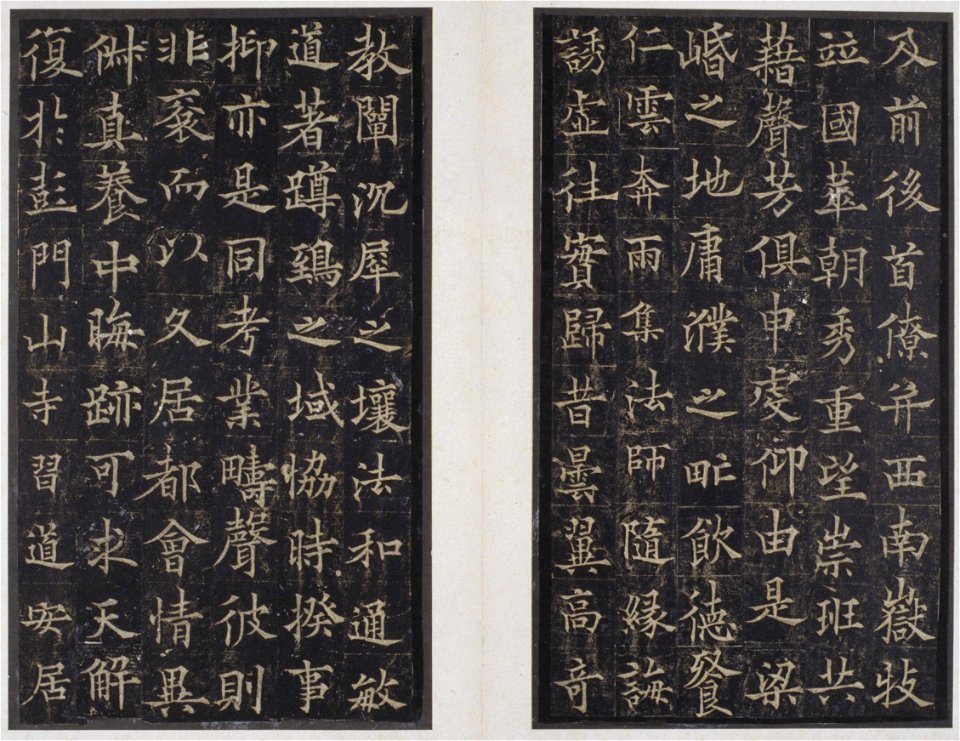 及前後首僚并西南嶽牧
竝國華朝秀重望崇班共
藉聲芳俱申虔仰由是梁
崏之地庸濮之甿飲德餐
仁雲奔雨集法師隨緣誨
誘虛往實歸昔曇翼高奇
教闡沉犀之壤法和通敏
道著蹲鵄之域協時揆事
抑亦是同考業疇聲彼則
非褒而以久居都會情異
舛真養中晦跡可求天解
復於彭門山寺習道安居